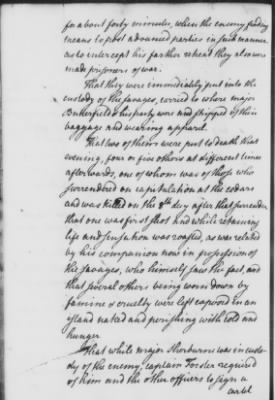 for about forty minutes, when the enemy finding
means to post advanced parties in such manner
as to intercept his farther retreat they also were
made prisoners of war.
That they were immediately put into the
custody of the savages, carried to where major
Butterfeild & his party were and stripped of their
baggage and wearing apparel
That two of them were put to death that
evening, four or five others at different times
afterwards, one of whom was of those who
surrendered on capitulation at the cedars
and was killed on the 8th day after that surrender
that one was first shot and while retaining
life and sensation was roasted, as was related
by his companion now in possession of
the savages, who himself saw the fact, and
that several others being worn down by
famine & cruelty were left exposed in an
island naked and perishing with cold and
hunger
That while major Sherburne was in custo-
dy of the enemy, captain Forster required
of him and the other officers to sign a
cartel